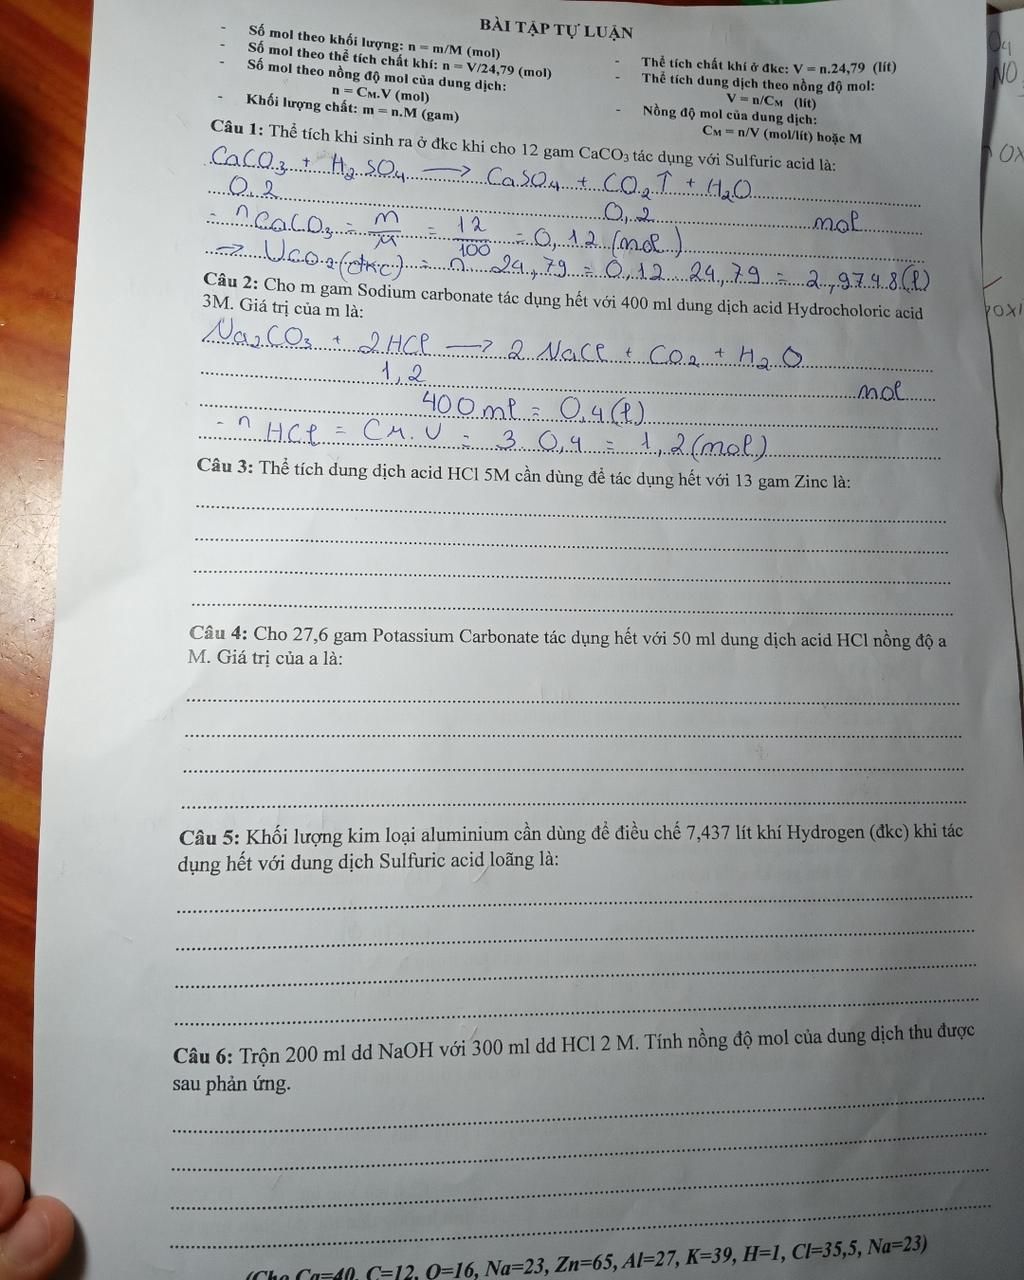 BÀI TẬP TỰ LUẬN
- Số mol theo khối lượng: n = m/M (mol)
- Số mol theo thể tích chất khí: n = V/24,79 (mol)
- Số mol theo nồng độ mol của dung dịch:
n = CM.V (mol)
- Khối lượng chất: m = n.M (gam)
- Thể tích chất khí ở đkc: V = n.24,79 (lít)
- Thể tích dung dịch theo nồng độ mol:
V = n/CM (lít)
- Nồng độ mol của dung dịch:
CM = n/V (mol/lít) hoặc M
Câu 1: Thể tích khi sinh ra ở đkc khi cho 12 gam CaCO3 tác dụng với Sulfuric acid là:
CaCO3 + H2SO4 → CaSO4 + CO2↑ + H2O
0,2 0,2 mol
- nCaCO3 = m/M = 12/100 = 0,12 (mol)
→ VCO2(đkc) = n. 24,79 = 0,12 . 24,79 = 2,9748(l)
Câu 2: Cho m gam Sodium carbonate tác dụng hết với 400 ml dung dịch acid Hydrocholoric acid
3M. Giá trị của m là:
Na2CO3 + 2HCl → 2 NaCl + CO2 + H2O
1,2 mol
400 ml = 0,4(l)
- n HCl = CM.V = 3. 0,4 = 1,2 (mol)
Câu 3: Thể tích dung dịch acid HCl 5M cần dùng để tác dụng hết với 13 gam Zinc là:
Câu 4: Cho 27,6 gam Potassium Carbonate tác dụng hết với 50 ml dung dịch acid HCl nồng độ a
M. Giá trị của a là:
Câu 5: Khối lượng kim loại aluminium cần dùng để điều chế 7,437 lít khí Hydrogen (đkc) khi tác
dụng hết với dung dịch Sulfuric acid loãng là:
Câu 6: Trộn 200 ml dd NaOH với 300 ml dd HCl 2 M. Tính nồng độ mol của dung dịch thu được
sau phản ứng.
(Cho Ca=40, C=12, O=16, Na=23, Zn=65, Al=27, K=39, H=1, Cl=35,5, Na=23)